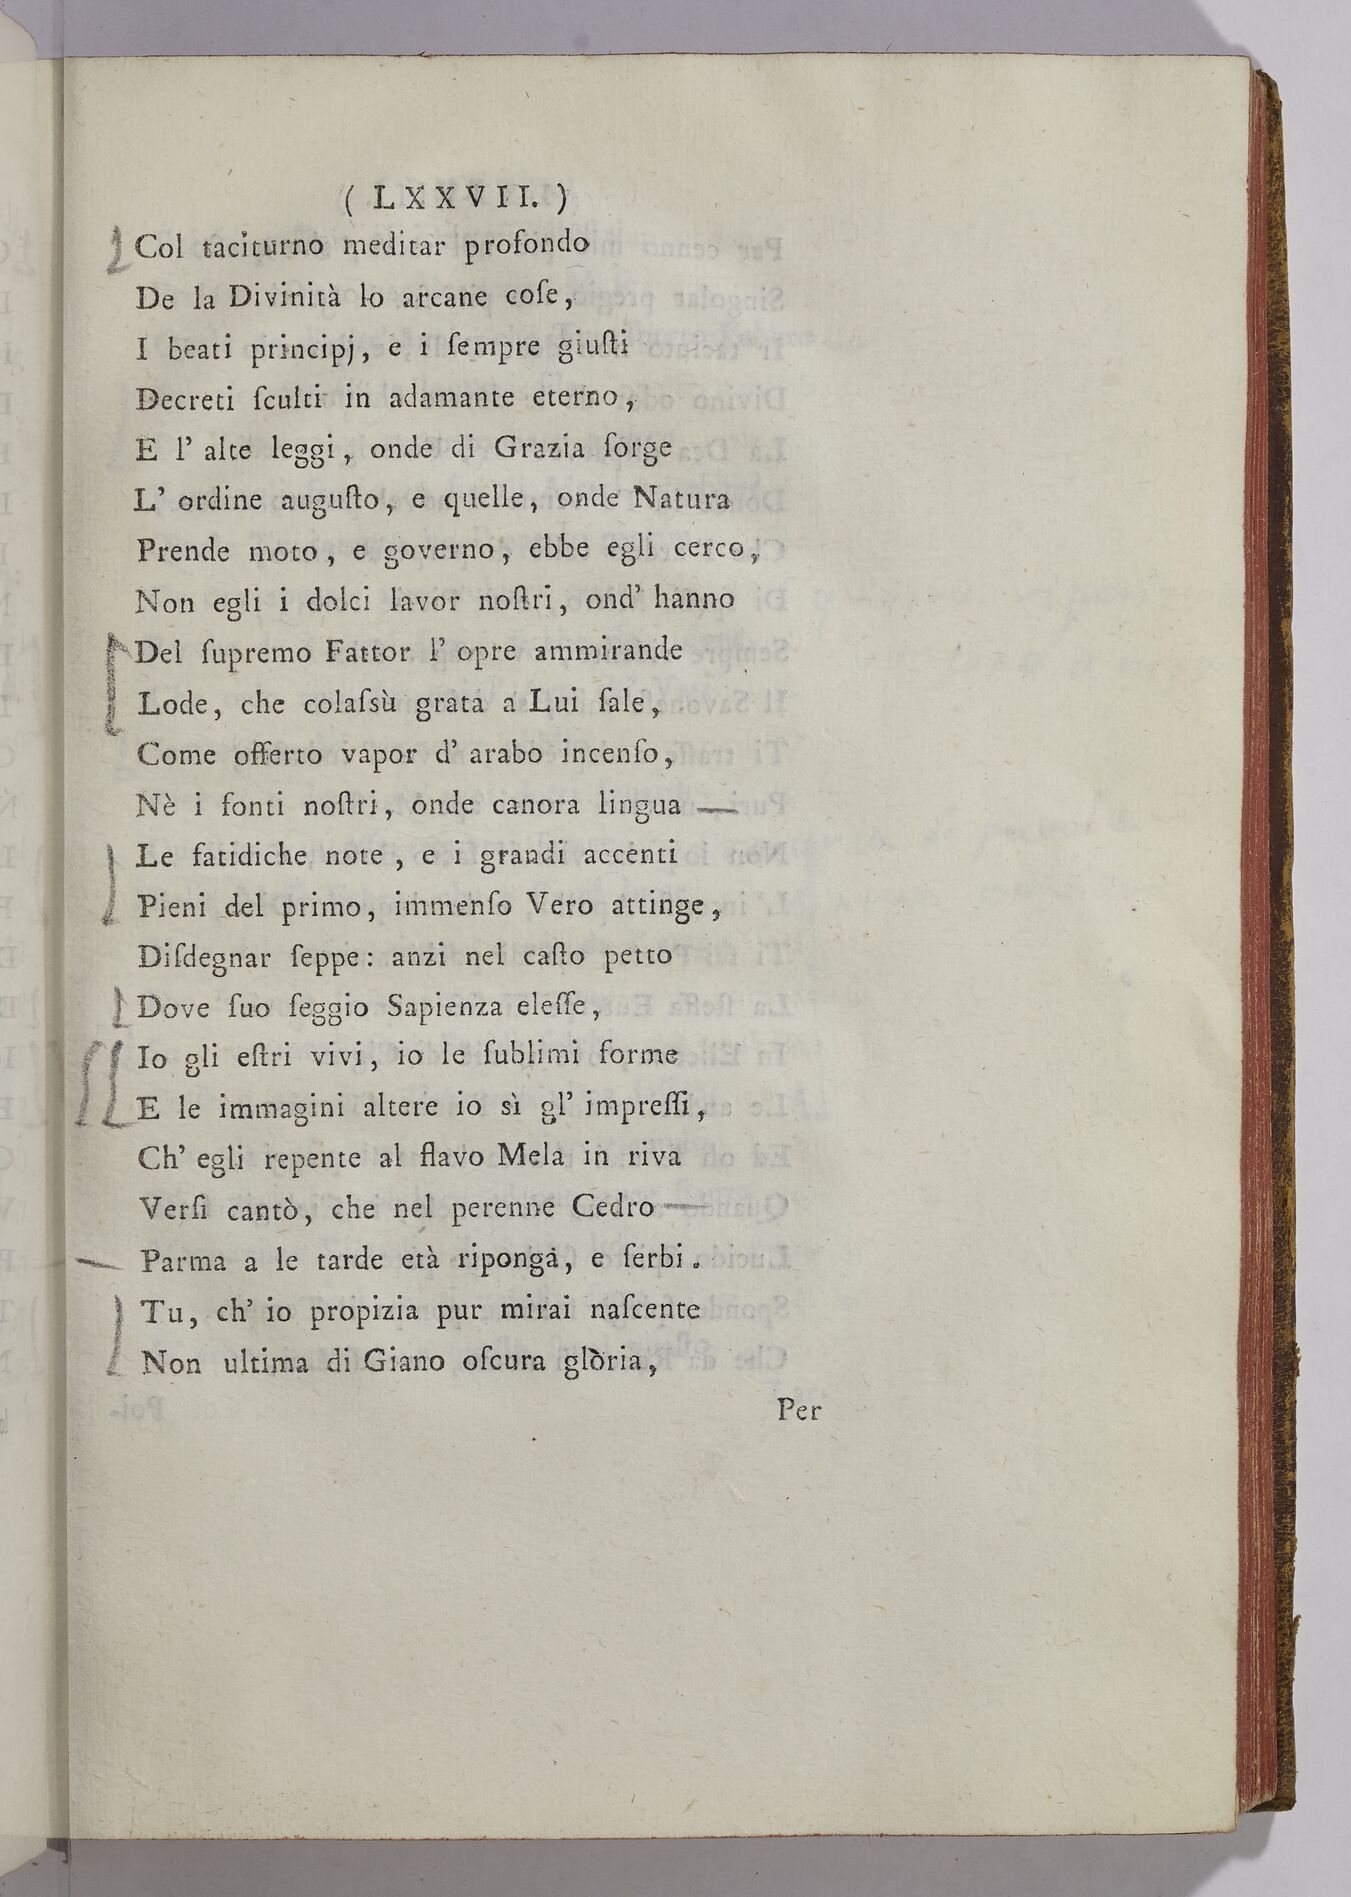 ( LXXVII. )
Col taciturno meditar profondo
De la Divinità lo arcane coſe,
I beati principj, e i ſempre giuſti
Decreti ſculti in adamante eterno,
E l' alte leggi, onde di Grazia ſorge
L' ordine auguſto, e quelle, onde Natura
Prende moto, e governo, ebbe egli cerco,
Non egli i dolci lavor noſtri, ond' hanno
Del ſupremo Fattor l' opre ammirande
Lode, che colaſsù grata a Lui ſale,
Come offerto vapor d' arabo incenſo,
Nè i fonti noſtri, onde canora lingua —
Le fatidiche note, e i grandi accenti
Pieni del primo, immenſo Vero attinge,
Diſdegnar ſeppe: anzi nel caſto petto
Dove ſuo ſeggio Sapienza eleſſe,
Io gli eſtri vivi, io le ſublimi forme
E le immagini altere io sì gl' impreſſi,
Ch' egli repente al flavo Mela in riva
Verſi cantò, che nel perenne Cedro —
Parma a le tarde età riponga, e ſerbi.
Tu, ch' io propizia pur mirai naſcente
Non ultima di Giano oſcura glòria,
Per